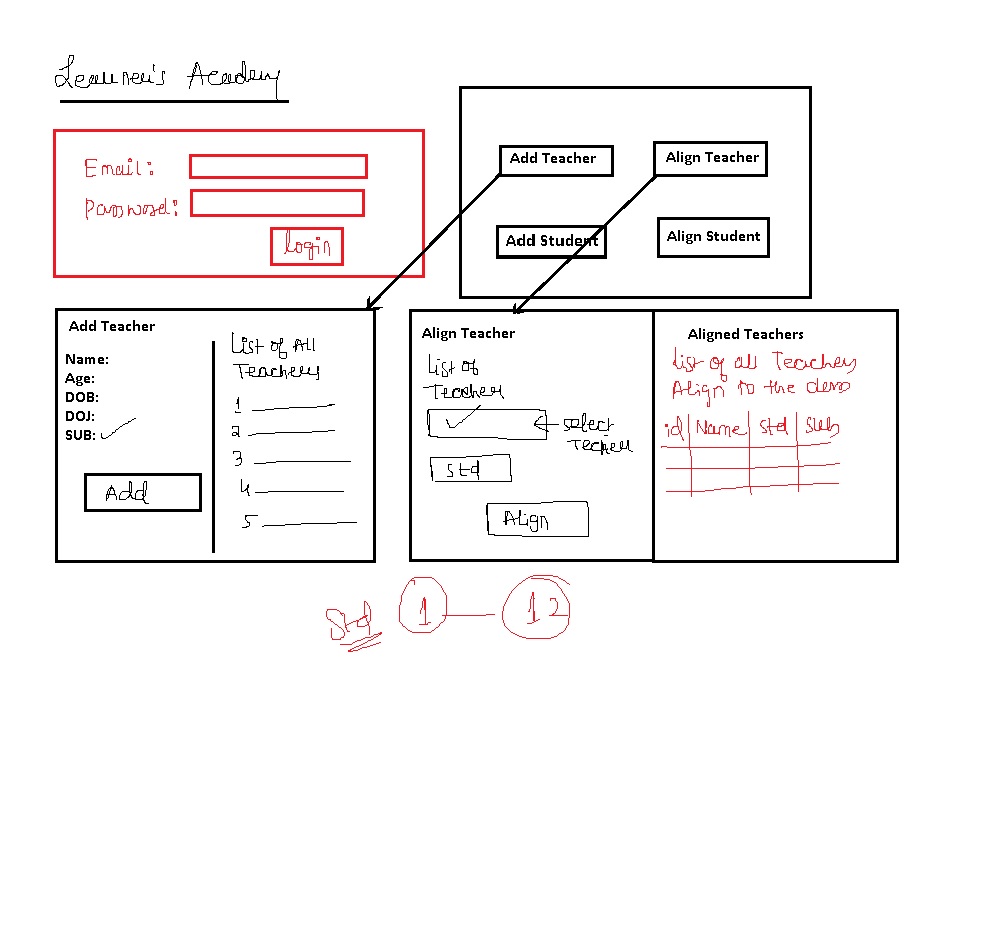 Learner's Academy
Email:
Password:
login
Add Teacher
Align Teacher
Add Student
Align Student
Add Teacher
Name:
Age:
DOB:
DOJ:
SUB:
Add
List of All
Teachers
1
2
3
4
5
Align Teacher
List of
Teacher
select
Techer
Std
Align
Aligned Teachers
List of all Teachers
Align to the class
id Name Std Sub
Std 1 12